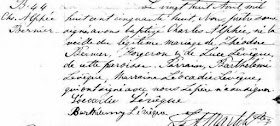 B-44
Chs Alphée
Bernier
Le vingt huit Avril, mil
huit cent cinquante huit, Nous prêtre sous
signé avons baptisé Charles Alphée, né la
veille du légitime mariage de Théodore
Bernier, Forgeron & de Luce Lévêque
de cette paroisse. Parrain, Barthélemi
Lévêque, Marraine Léocadie Lévêque
qui ont signé avec nous. Le père n'a su signer.
Léocadie Lévêque
Barthelemy Lévêque